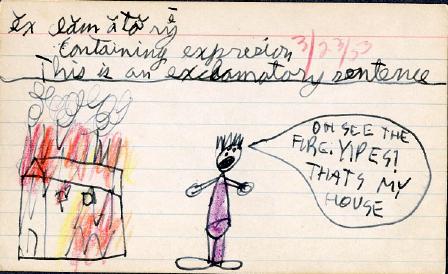 ĕx clăm ă tō rȳ
Containing expresion
3/23/53
This is an exclamatory sentence
OH SEE THE
FIRE. YIPES!
THATS MY
HOUSE